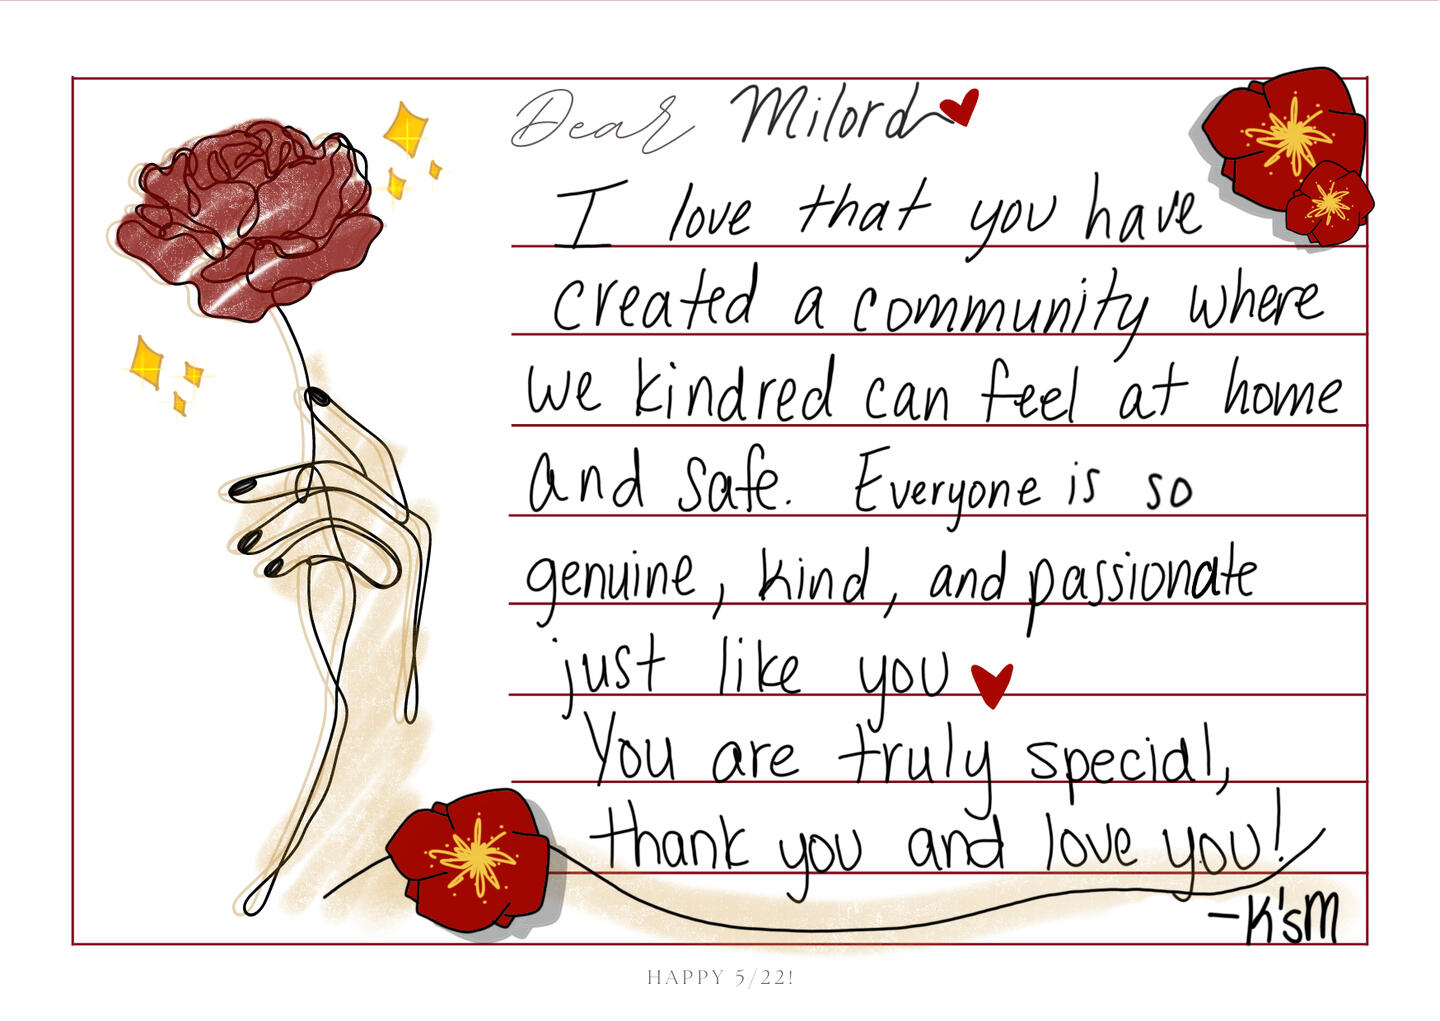 Dear Milord
I love that you have
created a community where
we kindred can feel at home
and safe. Everyone is so
genuine, kind, and passionate
just like you
You are truly special,
thank you and love you!
-K'sM
HAPPY 5/22!